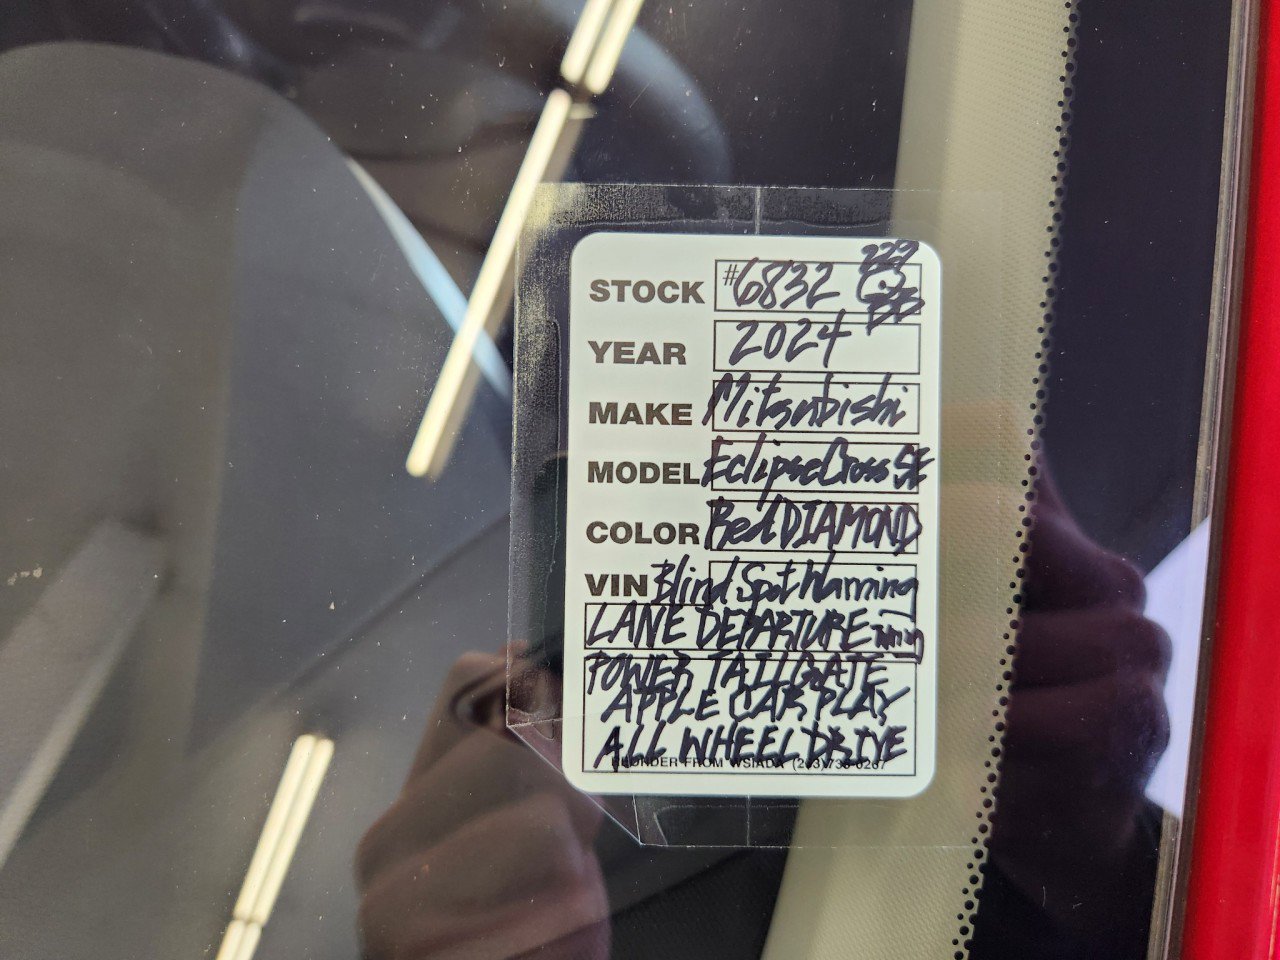 229
STOCK #6832
YEAR 2024
MAKE Mitsubishi
MODEL Eclipse Cross SE
COLOR Red DIAMOND
VIN Blind Spot Warning
LANE DEPARTURE
POWER TAILGATE
APPLE CAR PLAY
ALL WHEEL DRIVE
FROM WSIADA